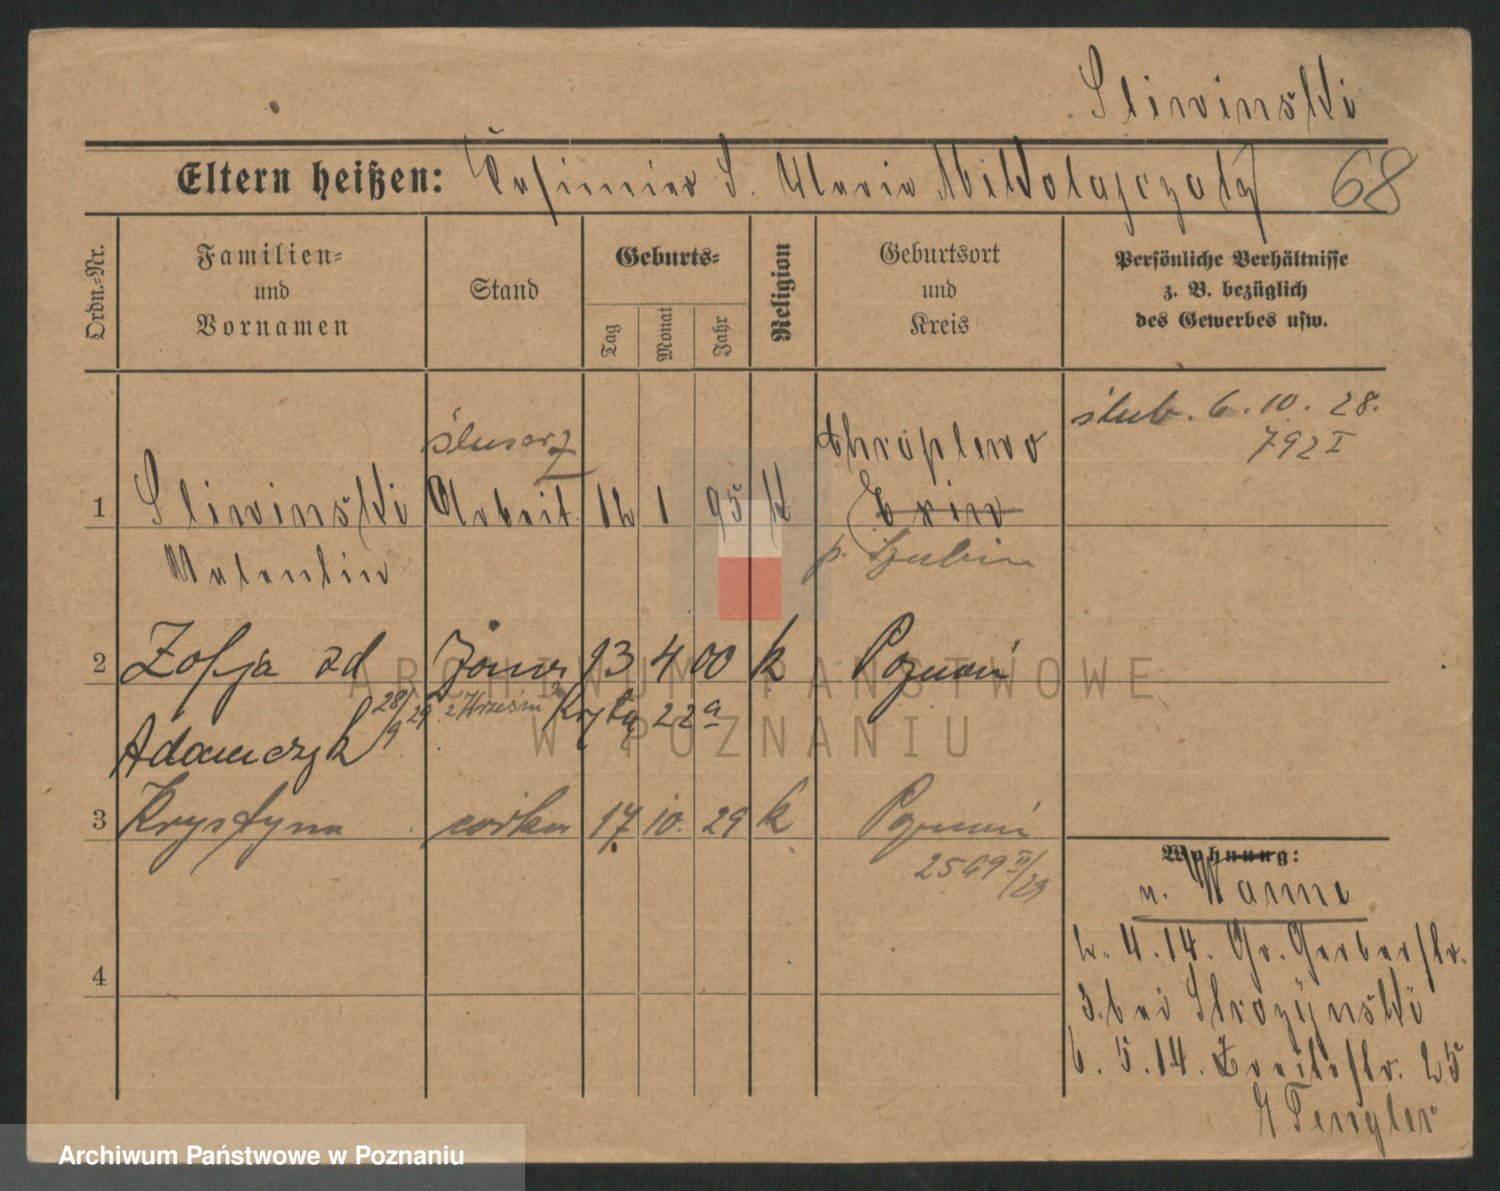 Sliwinski
Eltern heißen: Casimier S. Maria Mikolajczak
68
Ordn.-Nr.
Familien-
und
Vornamen
Stand
Geburts-
Tag
Monat
Jahr
Religion
Geburtsort
und
Kreis
Persönliche Verhältnisse
z. B. bezüglich
des Gewerbes usw.
ślub. 6. 10. 28.
792 I
ślusarz
Chraplewo
1 Sliwinski Arbeit 12 1 95 k Exin
Valentin
p. Szubin
2 Zofja zd żona 13 4 00 k Poznań
28/9 29 z Wrześni Kryta 22a
Adamczyk
3 Krystyna córka 17 10. 29 k Poznań
2569 II/29
4
Wohnung:
n. Warme
2. 4. 14. Gr. Gerberstr.
3. bei Strozynski
6. 5. 14. Breitestr. 25
Tengler
ARCHIWUM PAŃSTWOWE
W POZNANIU
Archiwum Państwowe w Poznaniu